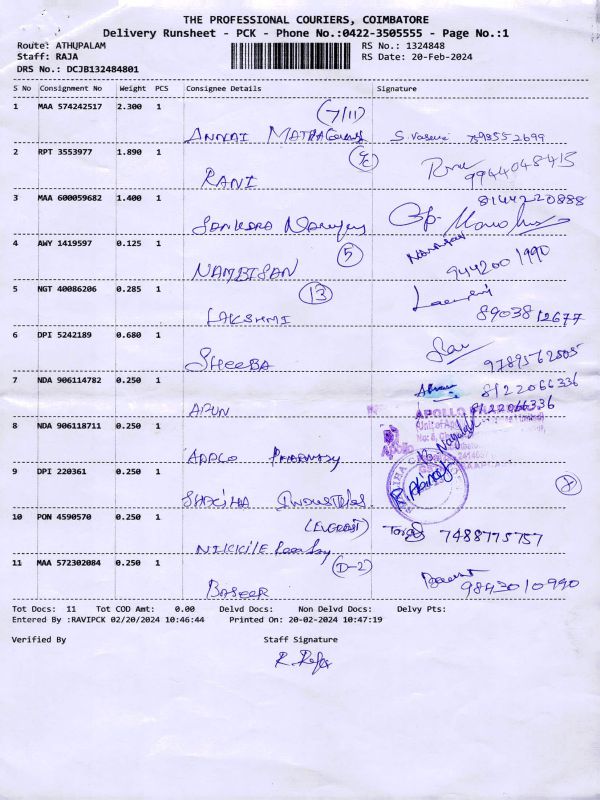 THE PROFESSIONAL COURIERS, COIMBATORE
Delivery Runsheet - PCK - Phone No.:0422-3505555 - Page No.:1
Route: ATHUPALAM
RS No.: 1324848
Staff: RAJA
RS Date: 20-Feb-2024
DRS No.: DCJB132484801
S No Consignment No Weight PCS Consignee Details Signature
1 MAA 574242517 2.300 1 (7/11)
ANNAI S. 793552699
2 RPT 3553977 1.890 1
RANI 9944048415
3 MAA 600059682 1.400 1 8144220888
SANKARA
4 AWY 1419597 0.125 1 5
NAMBISAN 9442001990
5 NGT 40086206 0.285 1 13
LAKSHMI 8903812677
6 DPI 5242189 0.680 1
SHEEBA 9789562505
7 NDA 906114782 0.250 1 8122066336
ARUN 8122066336
APOLLO
8 NDA 906118711 0.250 1
APPLO PHARMACY
9 DPI 220361 0.250 1
INDUSTRIES
10 PON 4590570 0.250 1 7488775757
11 MAA 572302084 0.250 1 (D-2)
BASEER 9843010990
Tot Docs: 11 Tot COD Amt: 0.00 Delvd Docs: Non Delvd Docs: Delvy Pts:
Entered By :RAVIPCK 02/20/2024 10:46:44 Printed On: 20-02-2024 10:47:19
Verified By Staff Signature
R. Raja